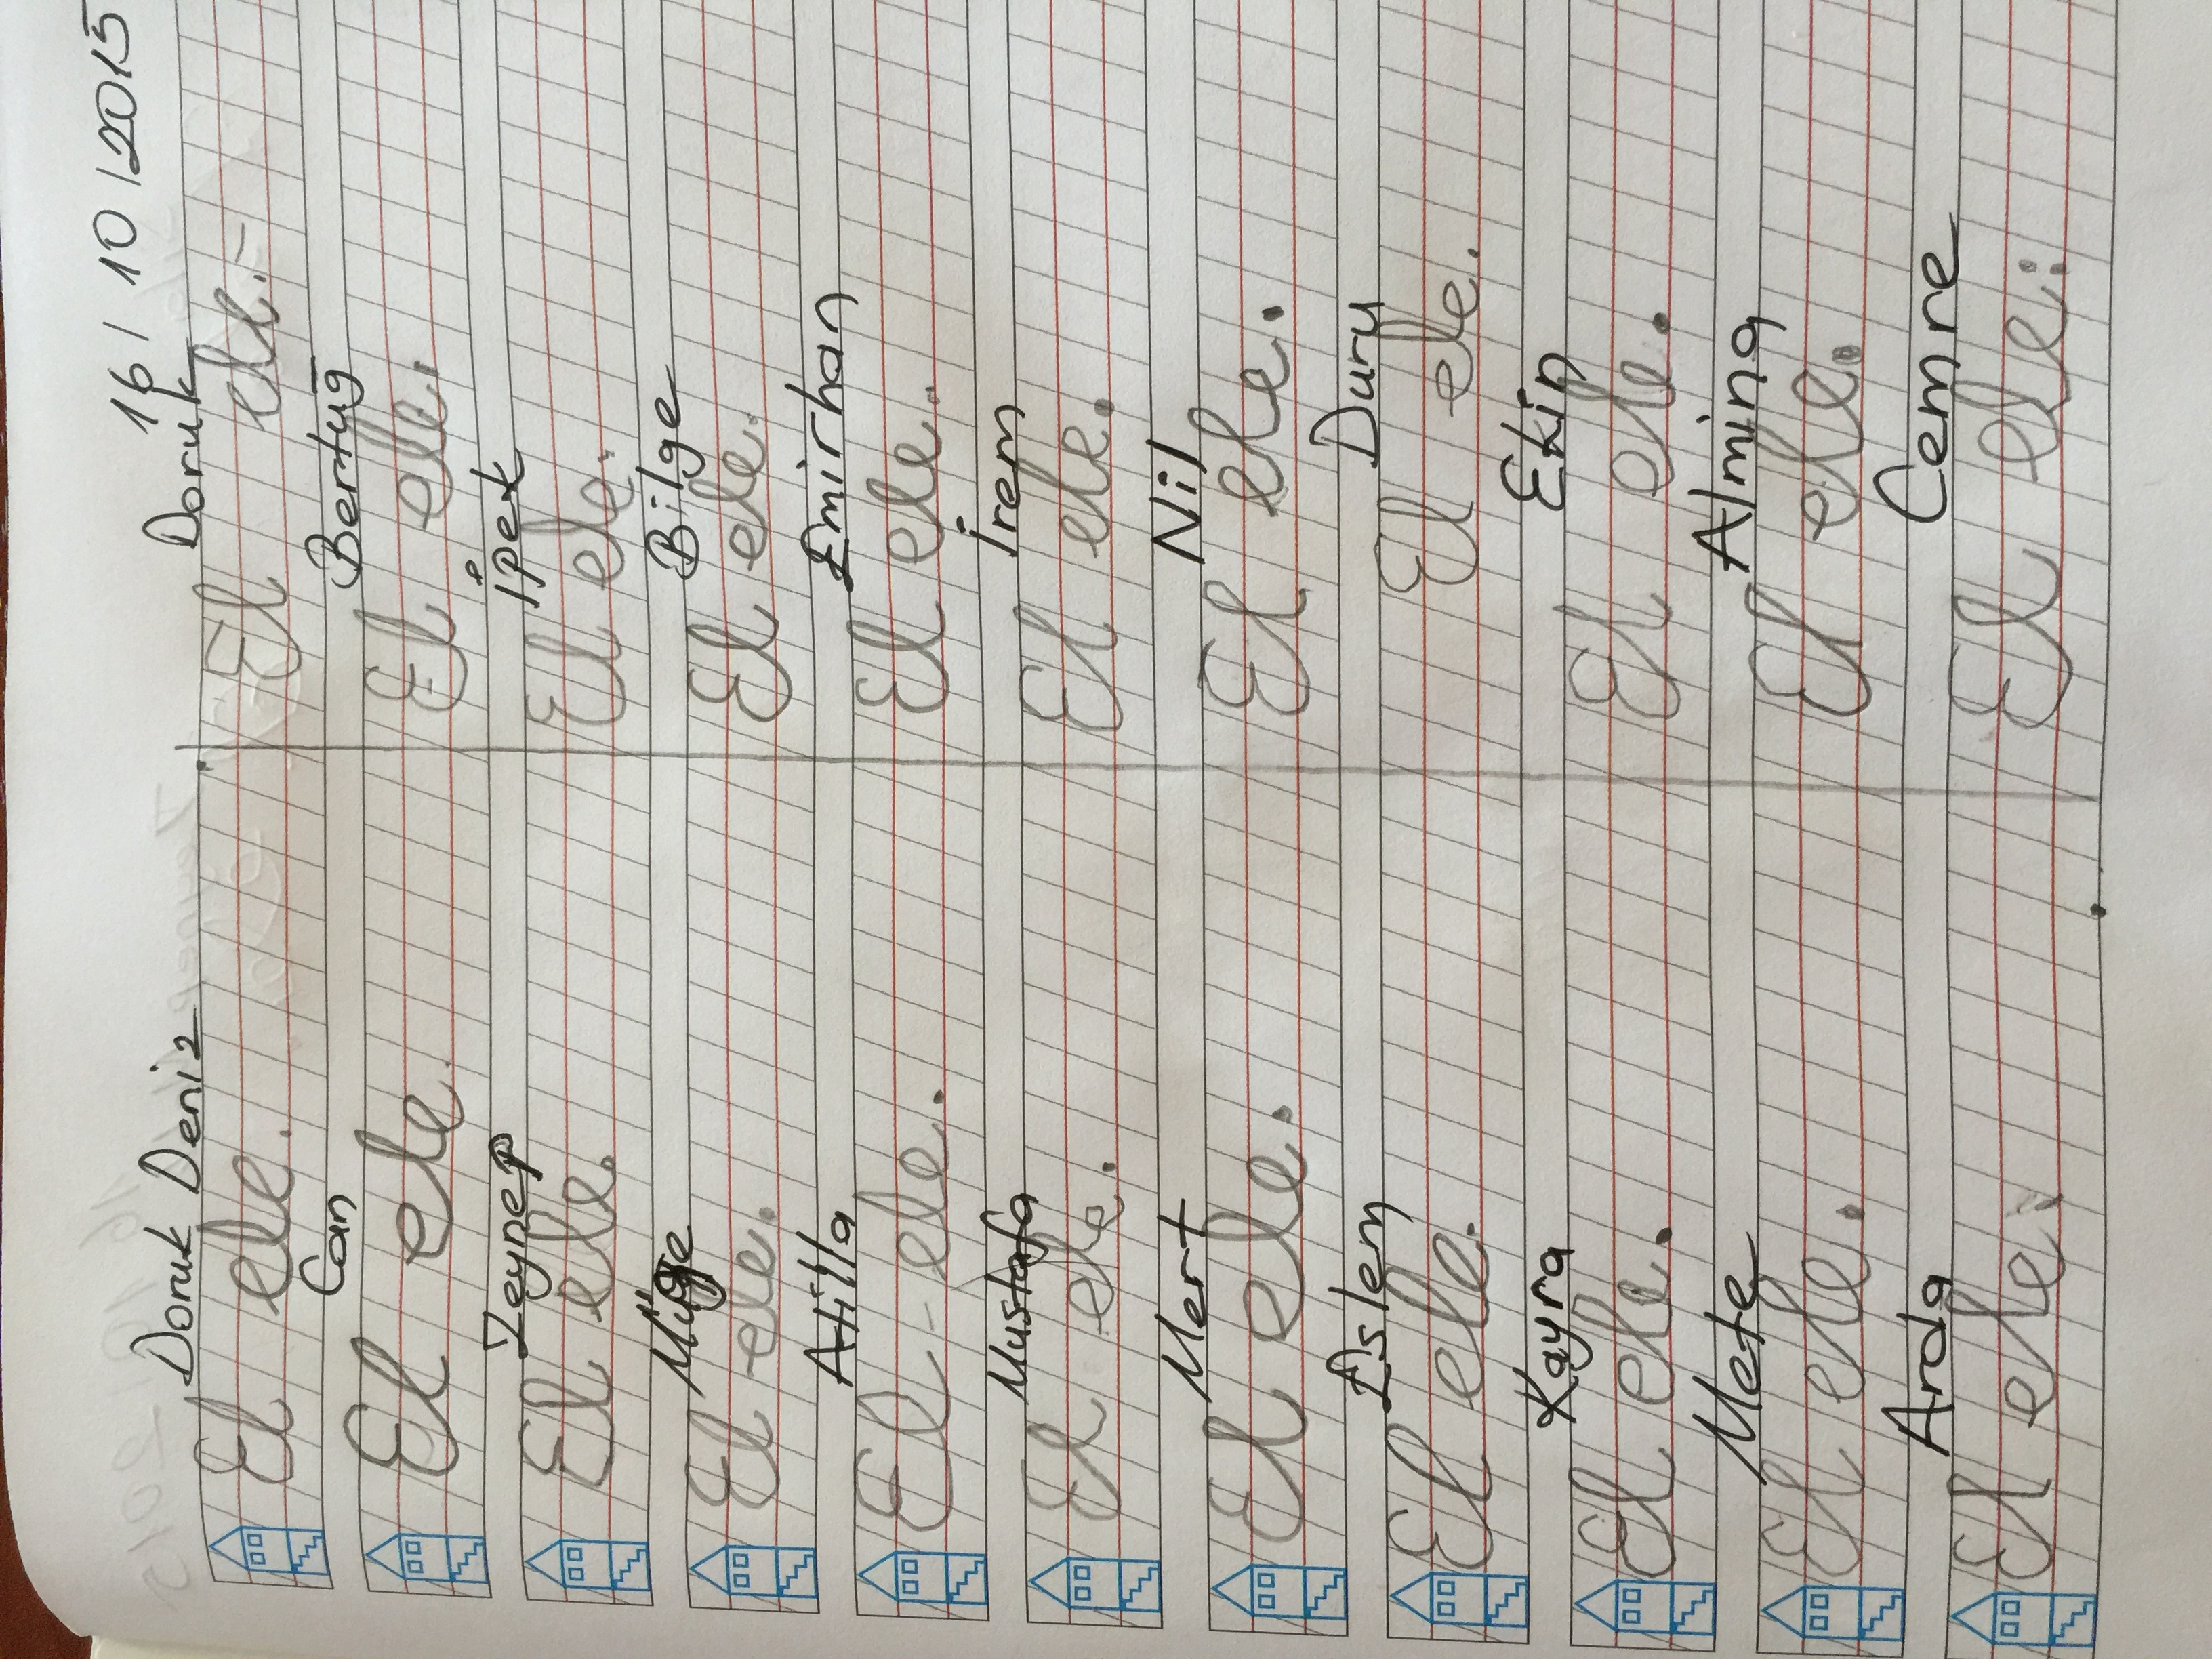 16 / 10 / 2015
Doruk Deniz Doruk
El ele. El ele.
Can Bertuğ
El ele. El ele.
Zeynep İpek
El ele. El ele.
Müge Bilge
El ele. El ele.
Atilla Emirhan
El - ele. El ele.
Mustafa İrem
El ele. El ele.
Mert Nil
El ele. El ele.
Eslem Duru
El ele. El ele.
Kayra Ekin
El ele. El ele.
Mete Almina
El ele. El ele.
Arda Cemre
El ele. El ele.